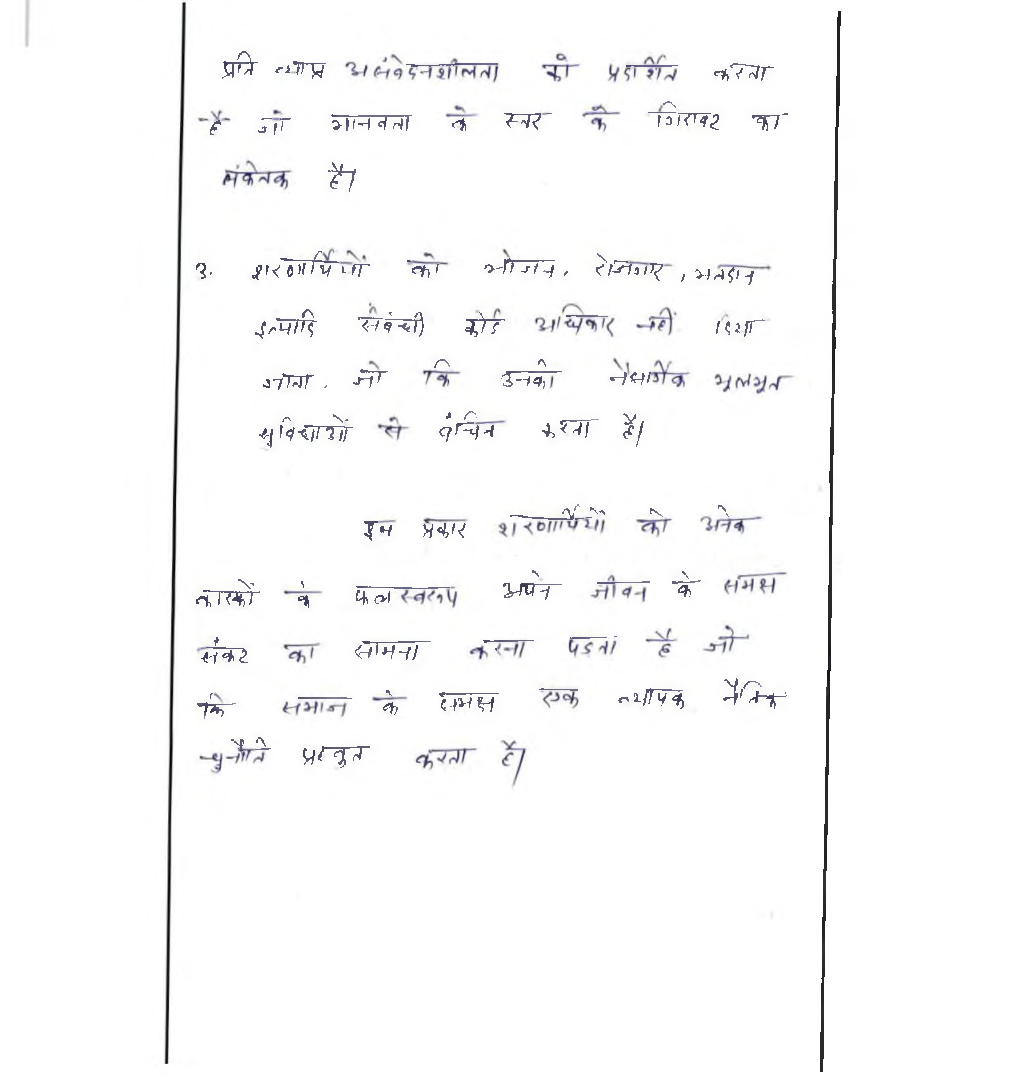 प्रति व्याप्त असंवेदनशीलता को प्रदर्शित करता
है जो मानवता के स्तर के गिरावट का
संकेतक है।
3. शरणार्थियों को भोजन, रोजगार, मतदान
इत्यादि संबंधी कोई अधिकार नहीं दिया
जाता, जो कि उनको नैसर्गिक मूलभूत
सुविधाओं से वंचित करता है।
इस प्रकार शरणार्थियों को अनेक
कारकों के फलस्वरूप अपने जीवन के समक्ष
संकट का सामना करना पडता है जो
कि समाज के समक्ष एक व्यापक नैतिक
चुनौति प्रस्तुत करता है।